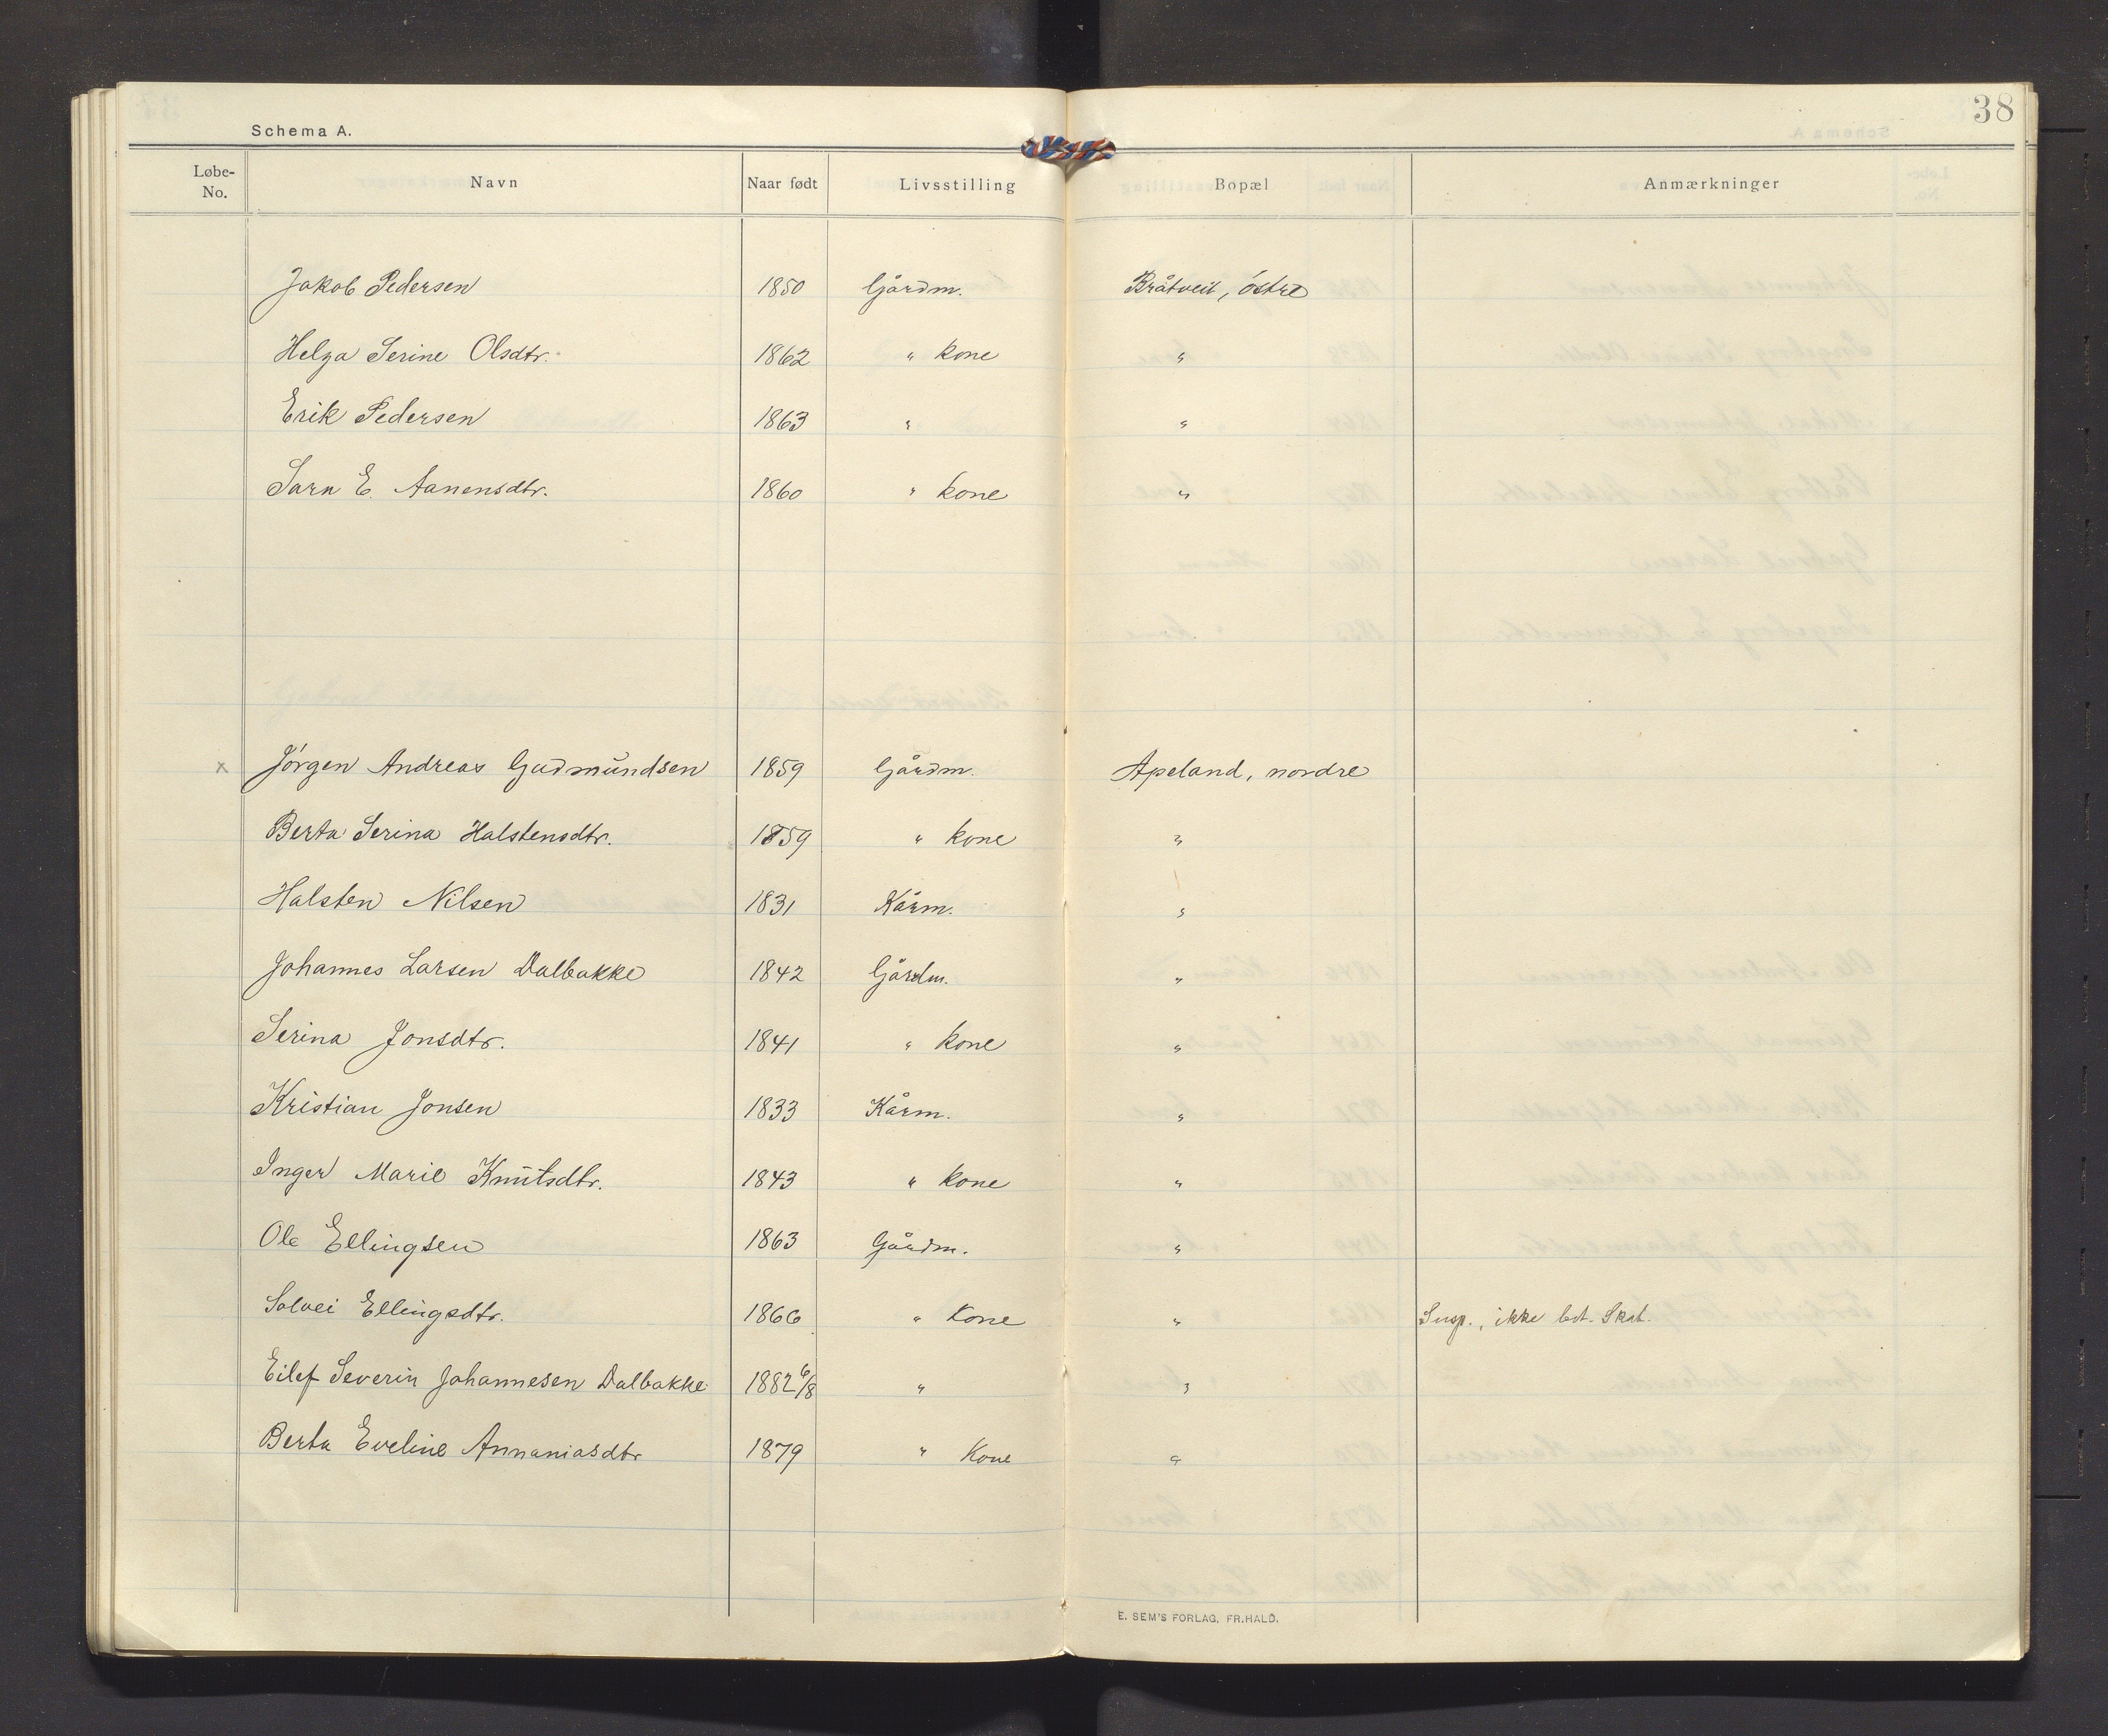 38
Schema A.
Løbe-No. Navn Naar født Livsstilling Bopæl Anmærkninger
Jakob Pedersen 1850 Gårdm. Bråtveit, östre
Helga Serine Olsdtr. 1862 " kone "
Erik Pedersen 1863 " "
Sara E. Aanensdtr. 1860 " kone "
x Jörgen Andreas Gudmundsen 1859 Gårdm. Apeland, nordre
Berta Serina Halstensdtr. 1859 " kone "
Halsten Nilsen 1831 Kårm. "
Johannes Larsen Dalbakke 1842 Gårdm. "
Serina Jonsdtr. 1841 " kone "
Kristian Jonsen 1833 Kårm. "
Inger Marie Knutsdtr. 1843 " kone "
Ole Ellingsen 1863 Gårdm. "
Solvei Ellingsdtr. 1866 " Kone " Susp., ikke bet. Skat.
Eilef Severin Johannesen Dalbakke 1882 6/8 " "
Berta Eveline Annaniasdtr 1879 " Kone "
E. SEM'S FORLAG, FR.HALD.